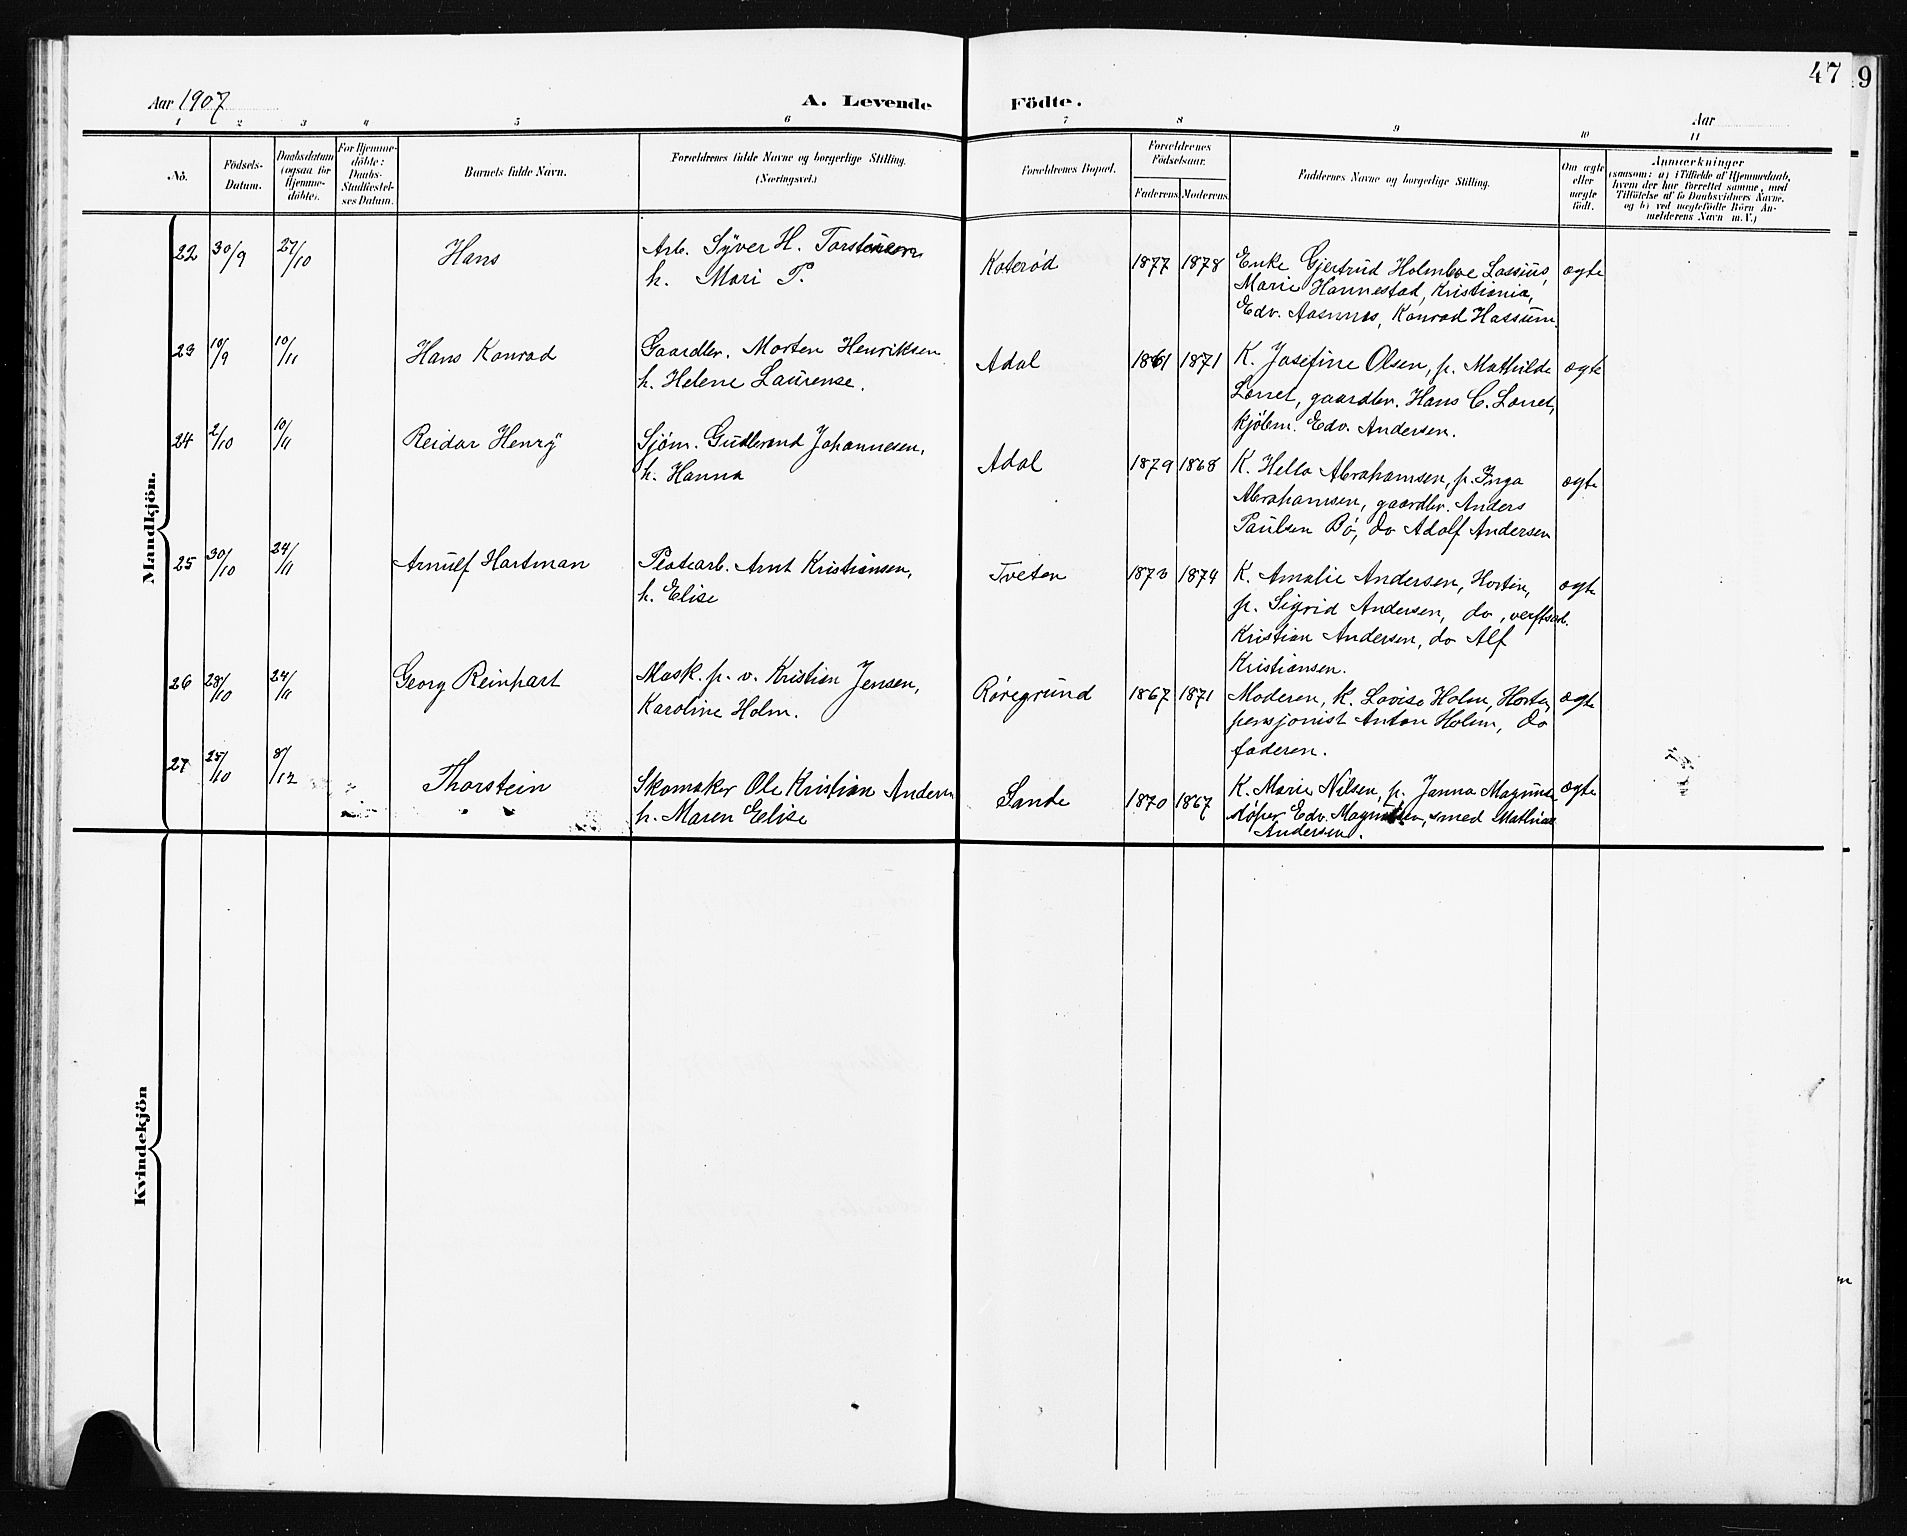 47
9
Aar 1907
A. Levende
Födte.
Aar
1 2 3 4 5 6 7 8 9 10 11
No.
Födsels-
Datum.
Daabsdatum
(ogsaa for
Hjemme-
döbte).
For Hjemme-
döbte:
Daabs-
Stadfæstel-
ses Datum.
Barnets fulde Navn.
Forældrenes fulde Navne og borgerlige Stilling.
(Næringsvei.)
Forældrenes Bopæl.
Forældrenes
Födselsaar.
Faderens Moderens
Faddernes Navne og borgerlige Stilling.
Om ægte
eller
uægte
födt.
Anmærkninger
(saasom: a) i Tilfælde af Hjemmedaab,
hvem der har forrettet samme, med
Tilföielse af to Daabsvidners Navne,
og b) ved uægtefödte Börn An-
melderens Navn m. V.)
Mandkjön.
22 30/9 27/10 Hans
Arb. Syver H. Torstensen
h. Mari P.
Koterød 1877 1878
Enke Gjertrud Holmboe Lassius,
Marie Hannestad, Kristiania,
Edv. Aasnæs, Konrad Hassum.
ægte
23 10/9 10/11 Hans Konrad
Gaardbr. Morten Henriksen
h. Helene Laurense.
Adal 1861 1871
K. Josefine Olsen, p. Mathilde
Lørret, gaardbr. Hans C. Lørret,
kjøbm. Edv. Andersen.
ægte
24 2/10 10/11 Reidar Henry
Sjøm. Gudbrand Johannesen,
h. Hanna
Adal 1879 1868
K. Hella Abrahamsen, p. Inga
Abrahamsen, gaardbr. Anders
Paulsen Bø, do Adolf Andersen
ægte
25 30/10 24/11 Arnulf Hartman
Pladearb. Arnt Kristiansen,
h. Elise
Tveten 1873 1874
K. Amalie Andersen, Horten,
p. Sigrid Andersen, do, verftsarb.
Kristian Andersen, do Alf
Kristiansen.
ægte
26 28/10 24/11 Georg Reinhart
Mask. p. v. Kristian Jensen,
Karoline Holm.
Røregrund 1867 1871
Moderen, K. Lovise Holm, Horten,
pensjonist Anton Holm, do
faderen.
ægte
27 25/10 8/12 Thorstein
Skomaker Ole Kristian Andersen
h. Maren Elise
Sande 1870 1867
K. Marie Nilsen, p. Janna Magnusen
støper Edv. Magnussen, smed Mathias
Andersen.
ægte
Kvindekjön